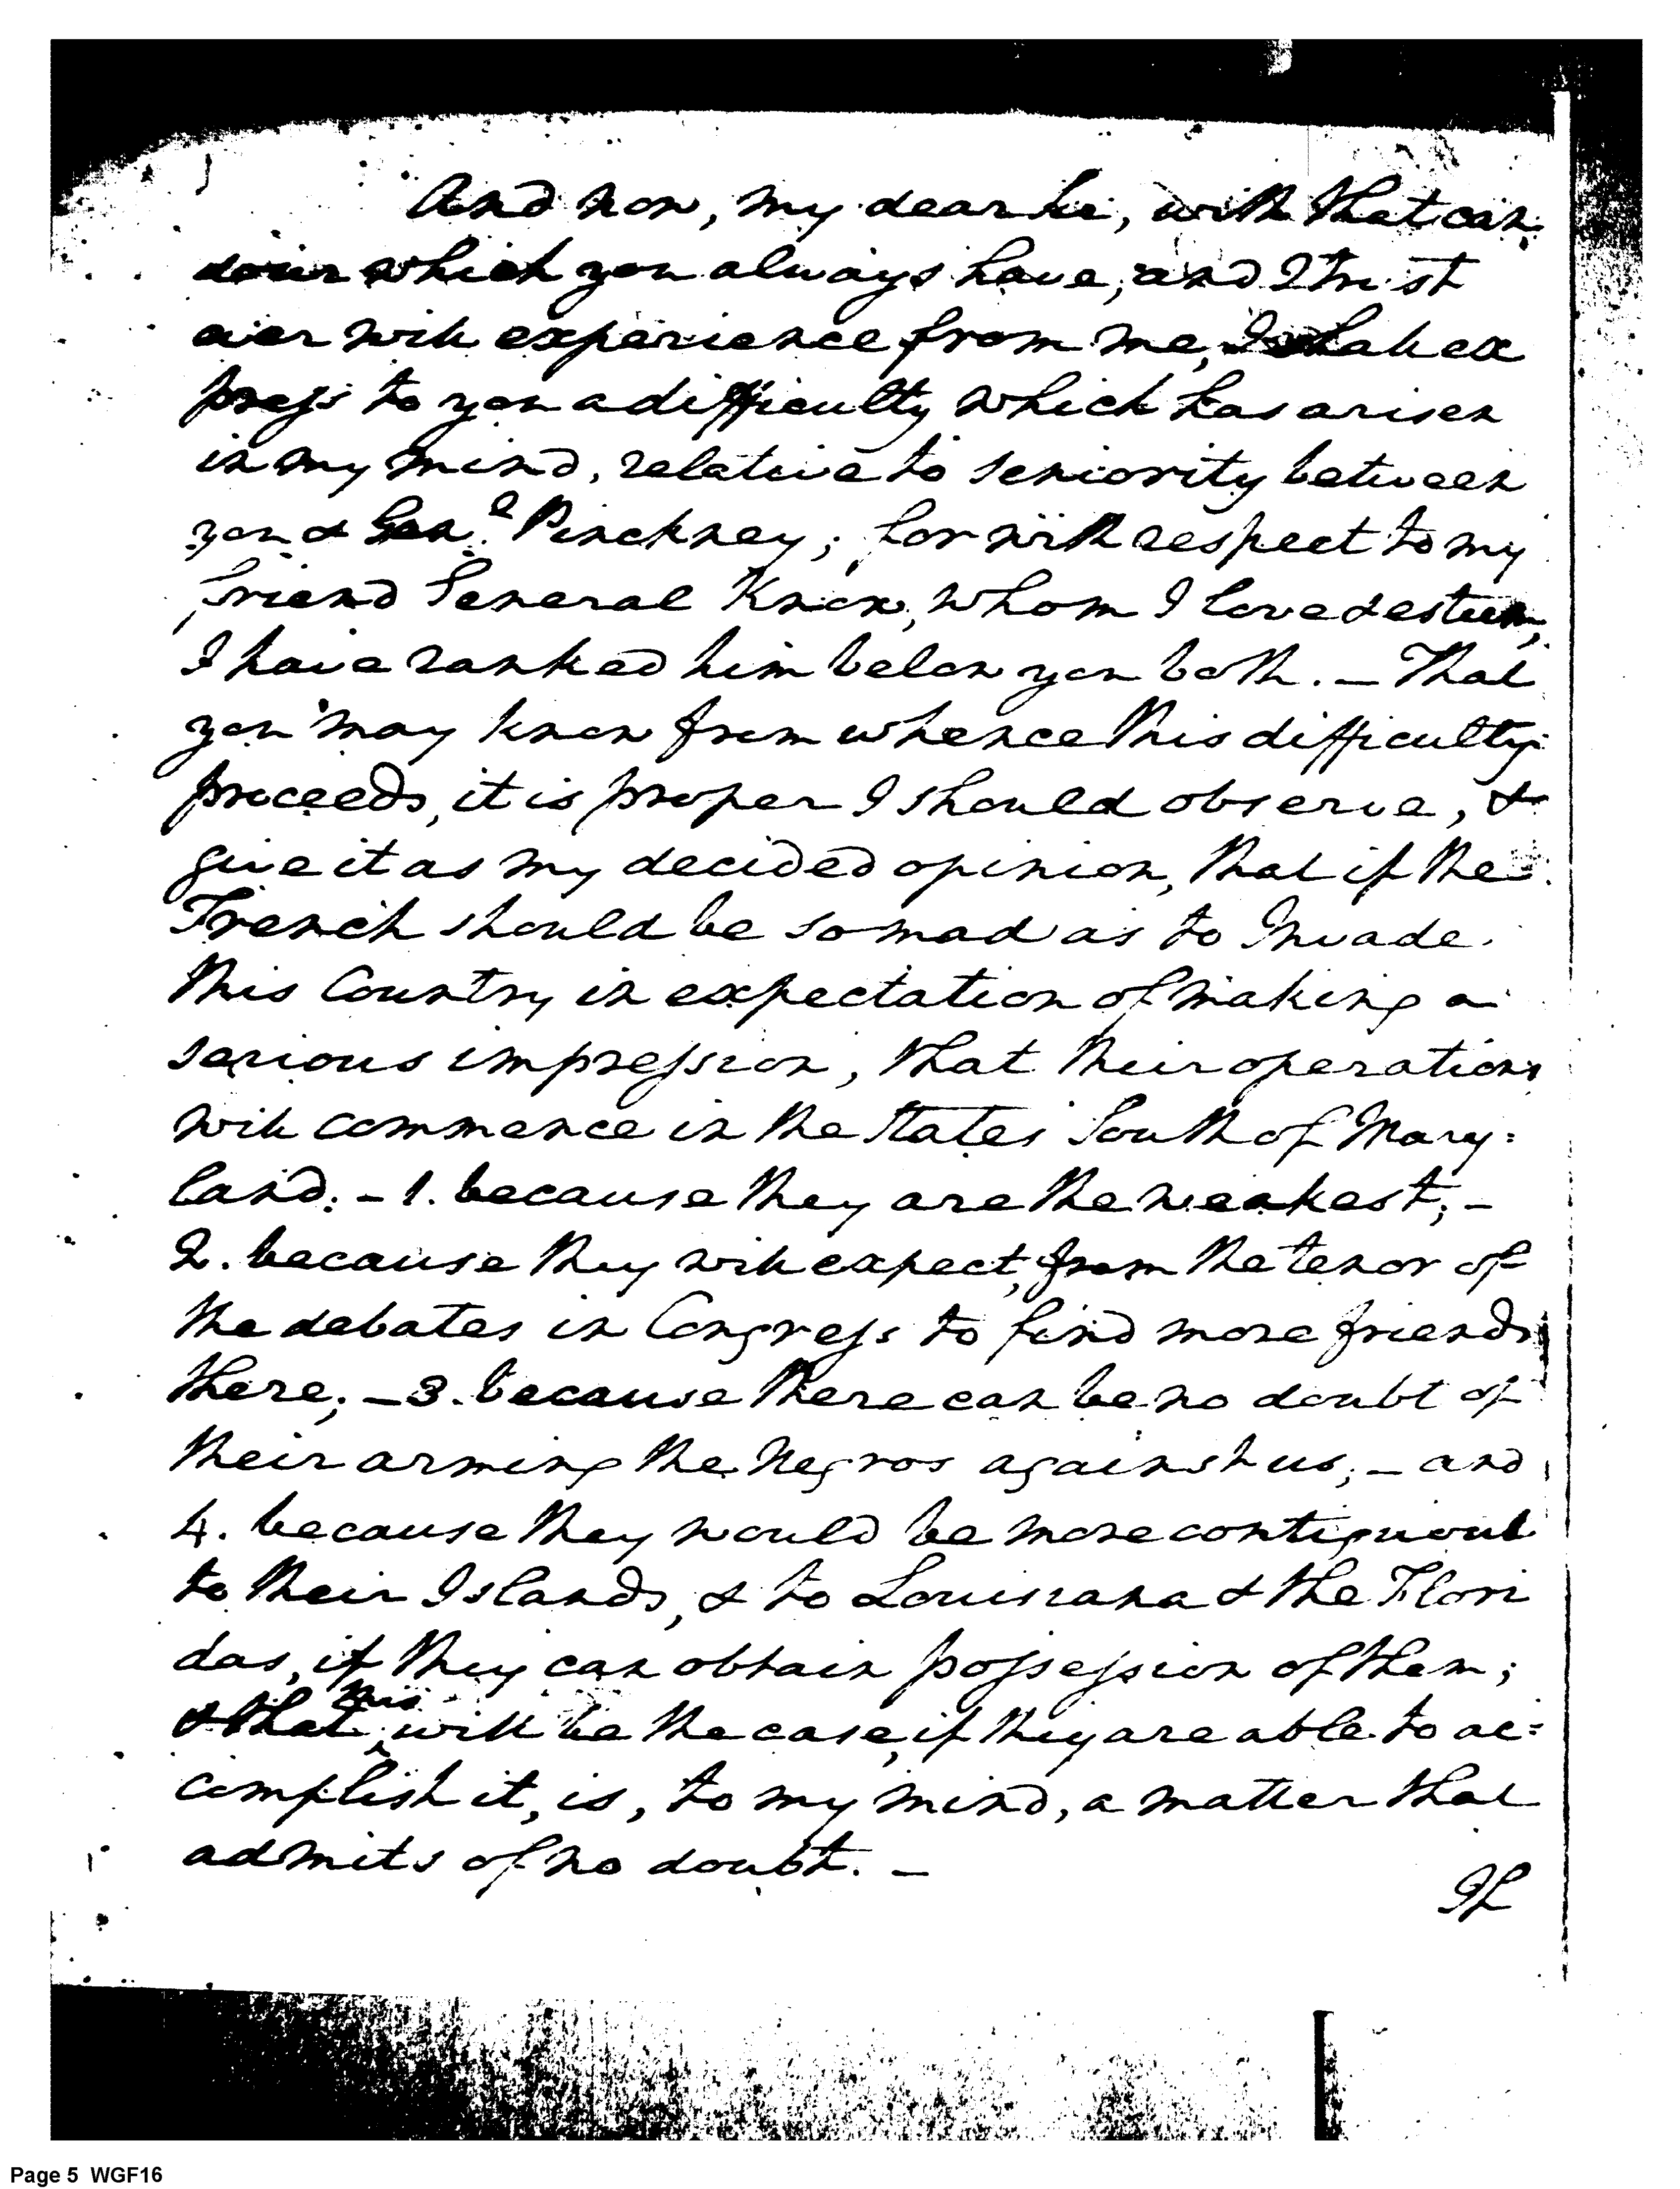 And now, my dear Sir, with that can-
dour which you always have, and I trust
ever will experience from me, I shall ex
press to you a difficulty which has arisen
in my mind, relative to seniority between
you & Gen.l Pinckney; for with respect to my
friend General Knox, whom I love & esteem,
I have ranked him below you both. — That
you may know from whence this difficulty
proceeds, it is proper I should observe, &
give it as my decided opinion, that if the
French should be so mad as to Invade
this Country in expectation of making a
serious impression, that their operations
will commence in the States South of Mary=
land: – 1. because they are the weakest; –
2. because they will expect, from the tenor of
the debates in Congress to find more friends
there; – 3. because there can be no doubt of
their arming the Negros against us; – and
4. because they would be more contiguous
to their Islands, & to Louisiana & the Flori
das, if they can obtain possession of them;
& that this will be the case, if they are able to ac=
complish it, is, to my mind, a matter that
admits of no doubt. –
If
Page 5 WGF16